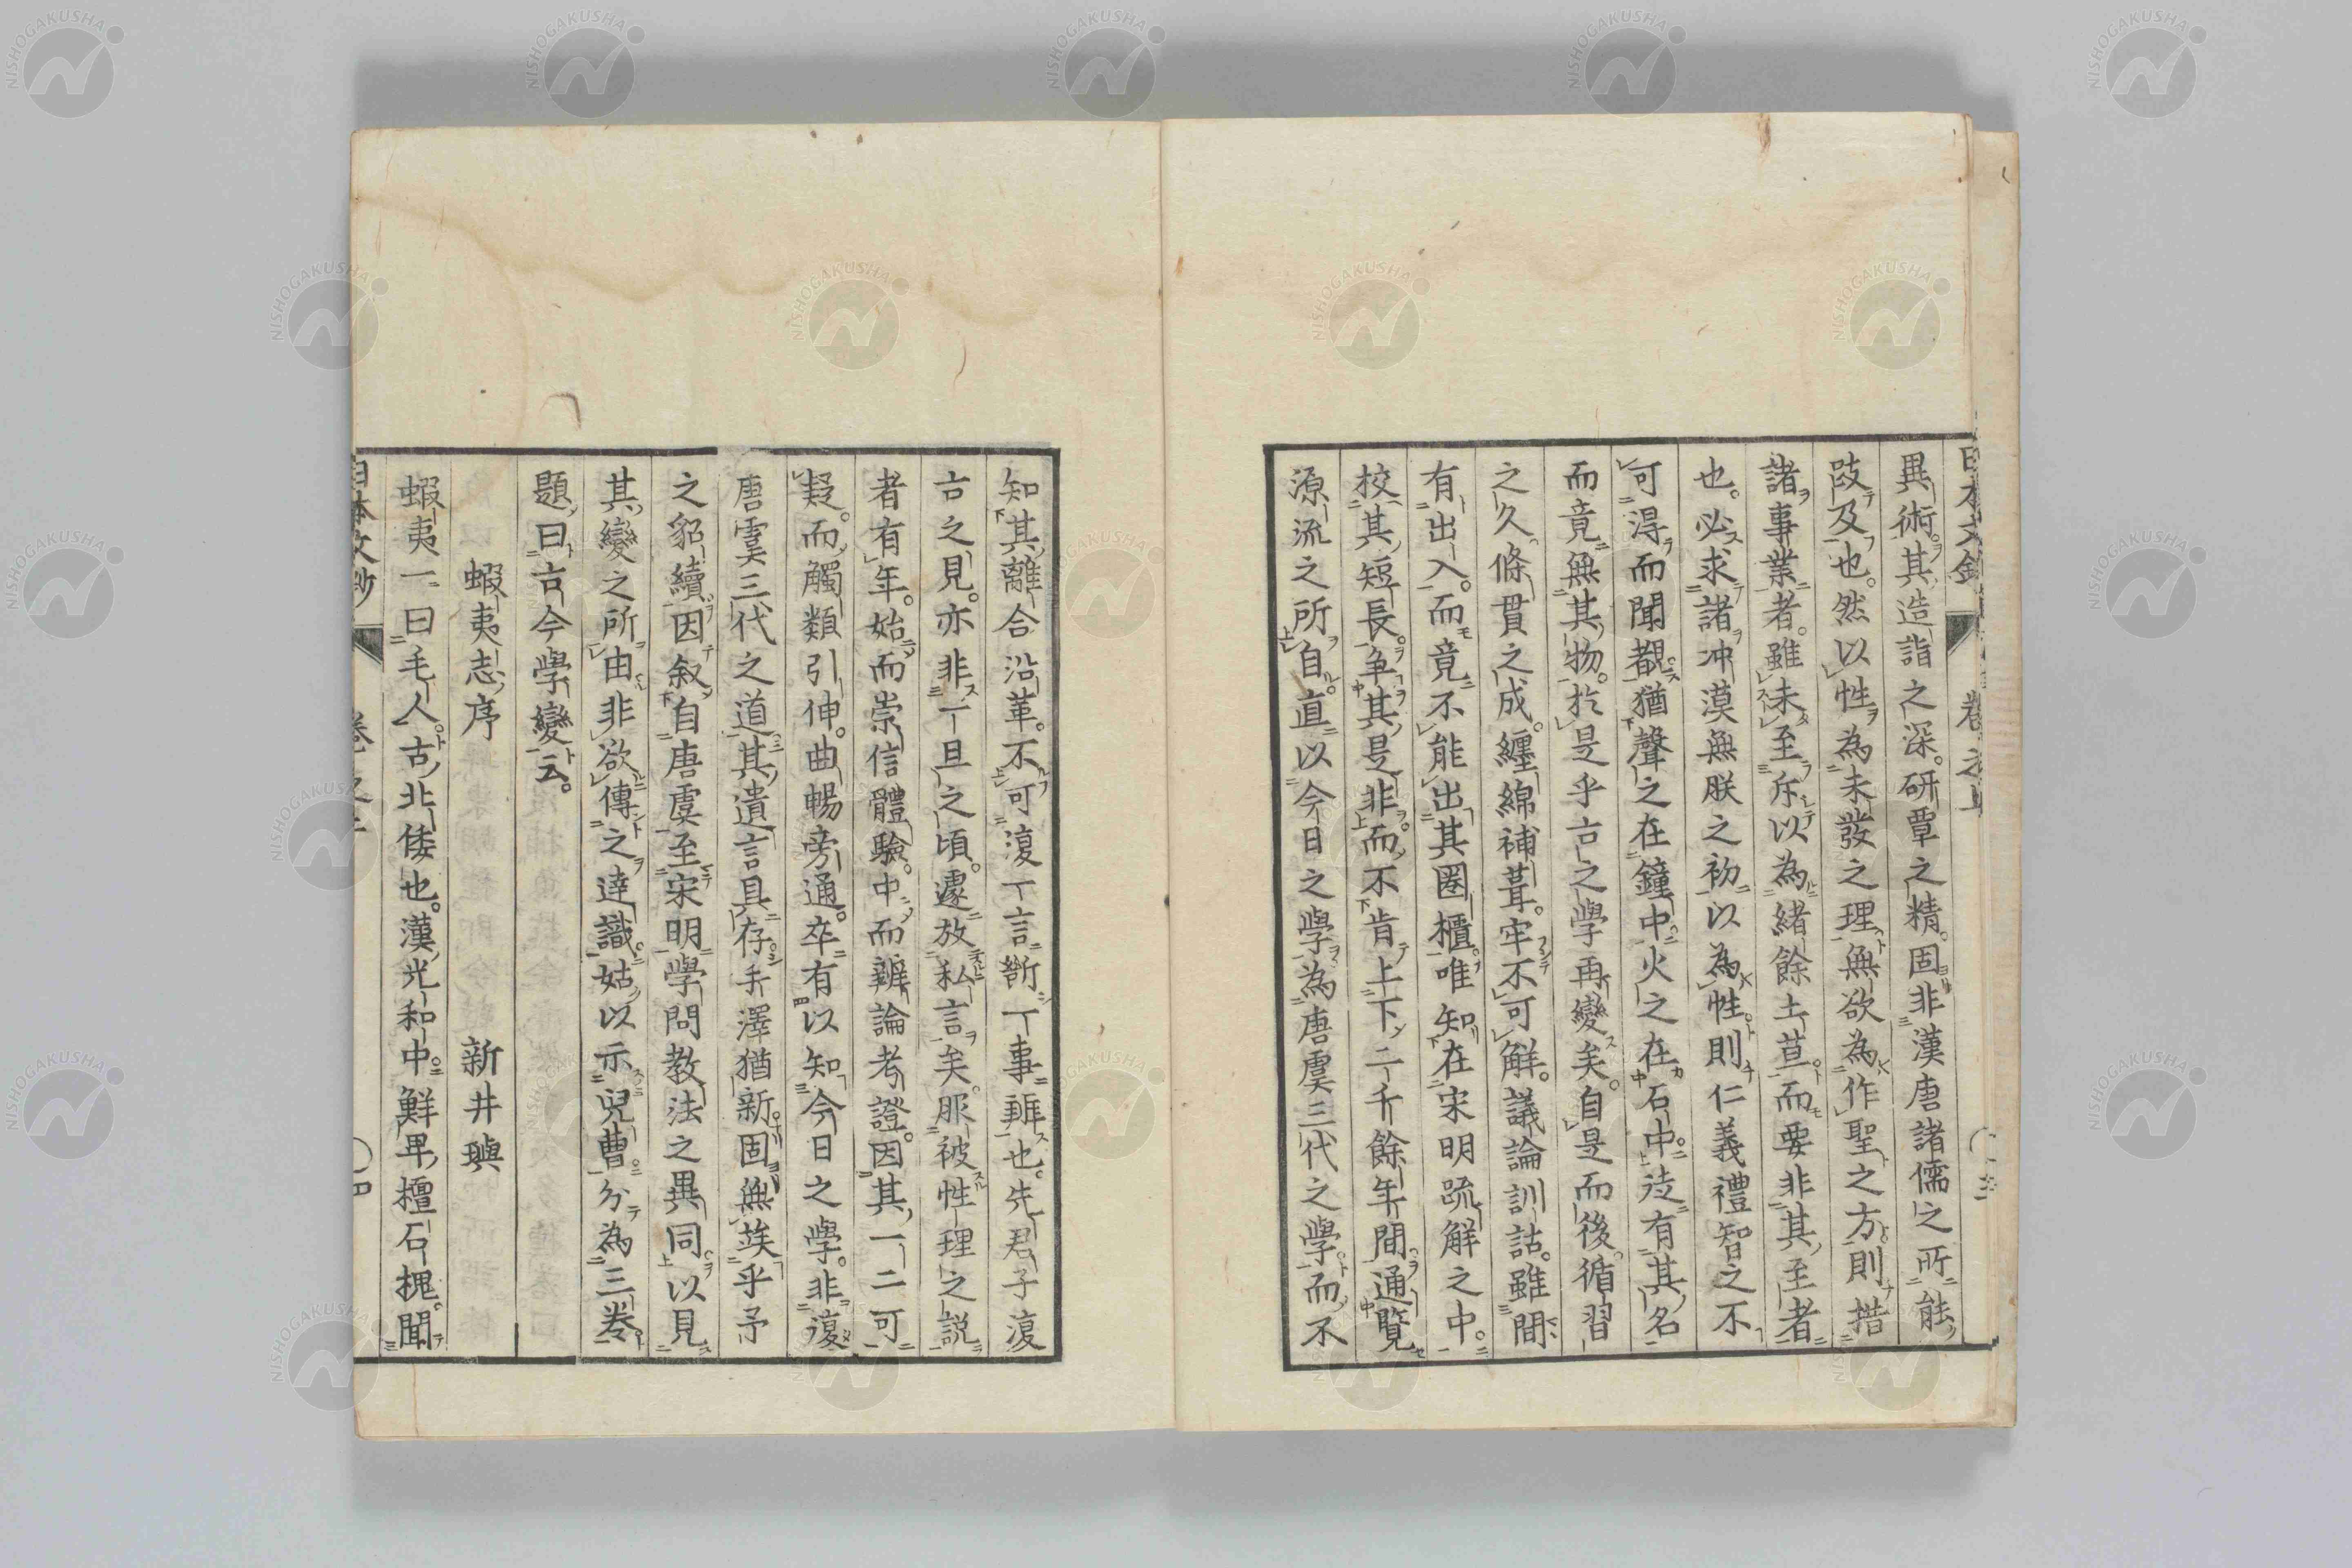 日本文鈔 卷之上
異術其造詣之深。研覃之精。固非漢唐諸儒之所能
跂及也。然以性為未發之理無欲為作聖之方則措
諸事業者。雖未至斥以為緒餘土苴而要非其至者
也。必求諸冲漠無朕之初以為性則仁義禮智之不
可淂而聞覩。猶聲之在鐘中火之在石中。徒有其名
而竟無其物。於是乎古之學再變矣。自是而後循習
之久條貫之成。纏綿補葺。牢不可解。議論訓詁。雖間
有出入。而竟不能出其圏櫃。唯知在宋明疏解之中。
校其短長。争其是非。而不肯上下二千餘年間。通覽
源流之所自。直以今日之學為唐虞三代之學。而不
知其離合沿革。不可復一言斷一事辨也。先君子復
古之見。亦非一旦之頃。遽放私言矣。服被性理之説
者有年。始而崇信體驗。中而辨論考證。因其一二可
疑。而觸類引伸。曲暢旁通。卒有以知今日之學。非復
唐虞三代之道其遺言具存手澤猶新。固無竢乎予
之貂續因叙自唐虞至宋明學問教法之異同。以見
其變之所由非欲傳之逹識。姑以示兒曹。分為三卷
題曰古今學變云。
蝦夷志序 新井璵
蝦夷一曰毛人。古北倭也。漢光和中。鮮卑檀石槐。聞
日本文鈔 卷之上 四